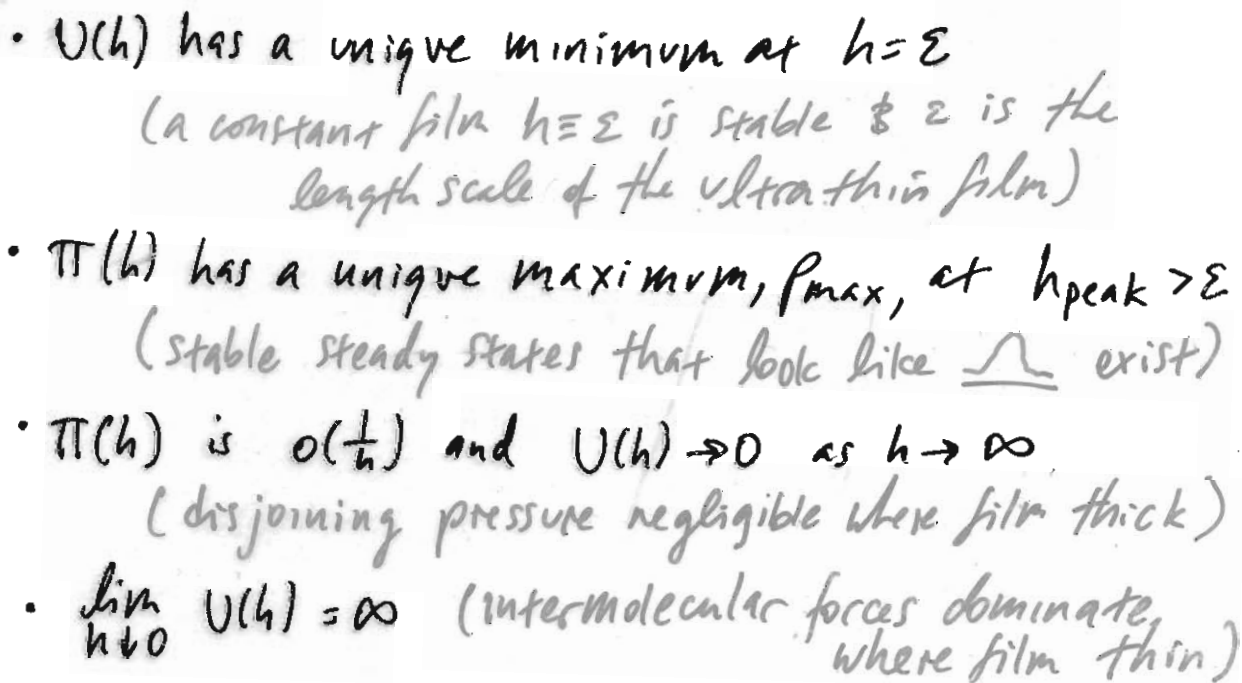 • U(h) has a unique minimum at h=ε
(a constant film h≡ε is stable & ε is the
length scale of the ultra thin film)
• Π(h) has a unique maximum, Pmax, at hpeak >ε
(stable steady states that look like exist)
• Π(h) is o(1/h) and U(h)→0 as h→∞
(disjoining pressure negligible where film thick)
• lim h↓0 U(h) = ∞ (intermolecular forces dominate,
where film thin)